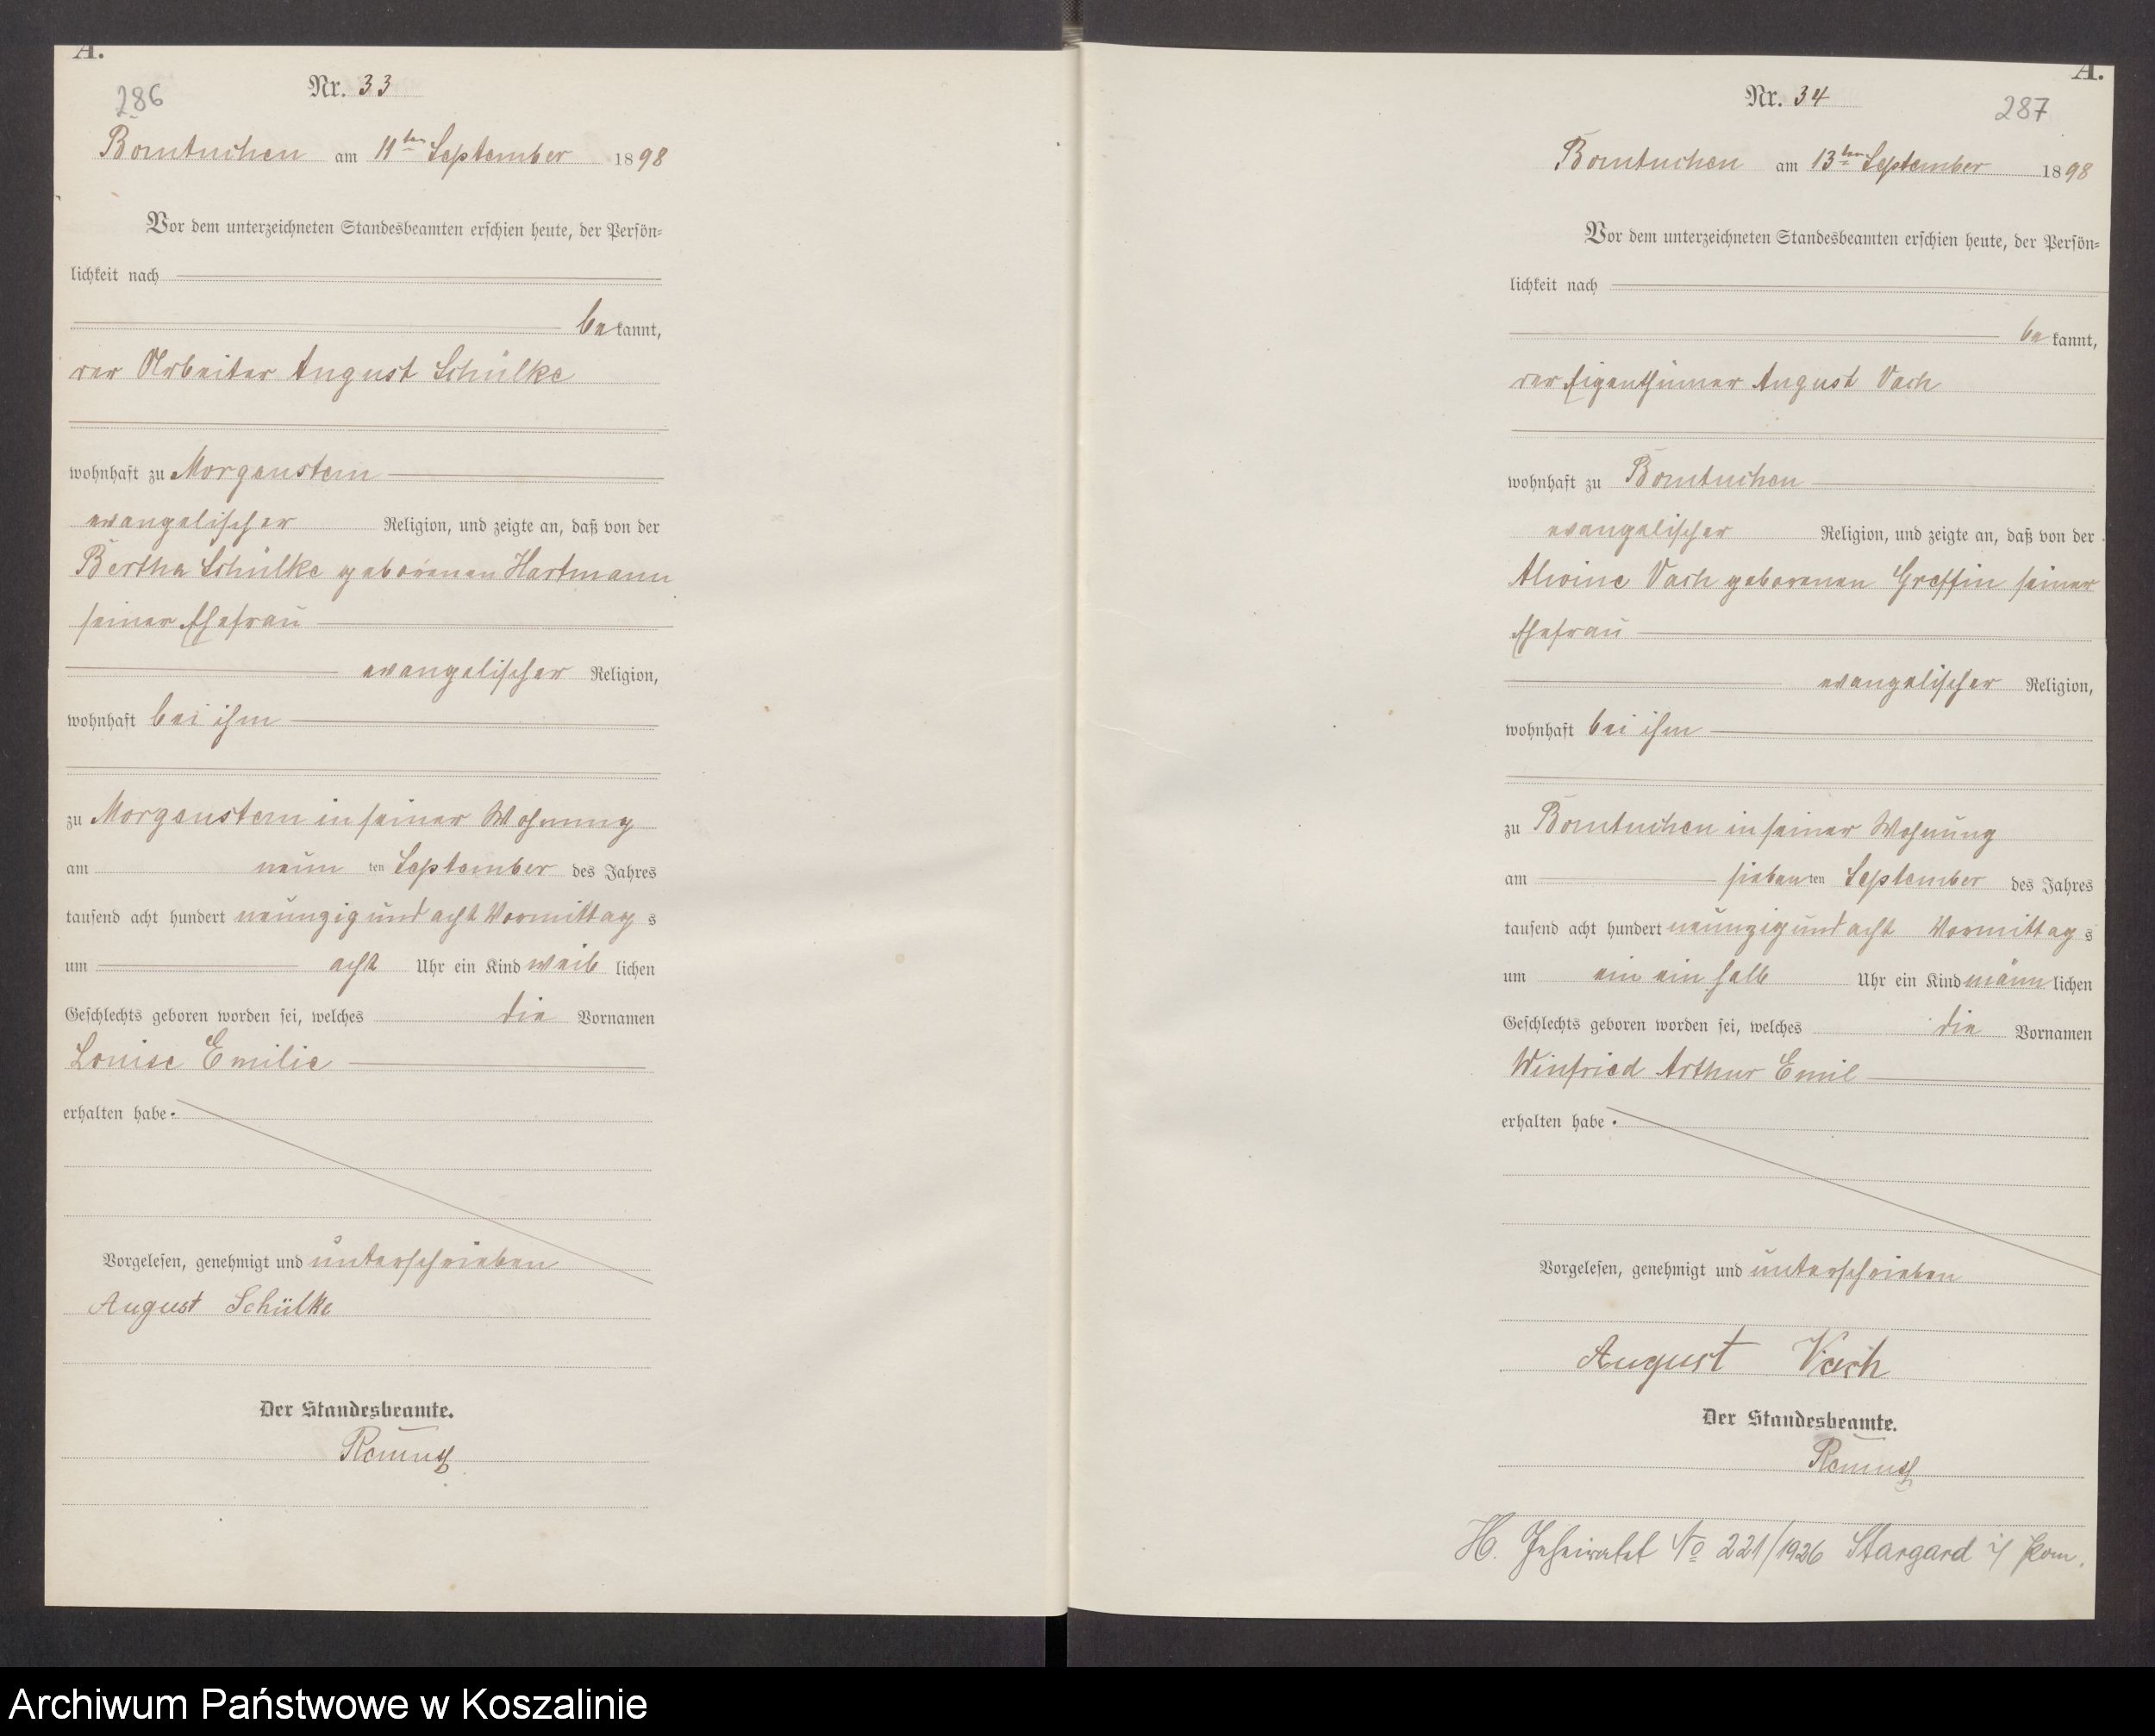 A.
286
Nr. 33
Borntuchen am 11ten September 1898
Vor dem unterzeichneten Standesbeamten erschien heute, der Persön-
lichkeit nach
bekannt,
der Arbeiter August Schülke
wohnhaft zu Morgenstern
evangelischer Religion, und zeigte an, daß von der
Bertha Schülke geborenen Hartmann
seiner Ehefrau
evangelischer Religion,
wohnhaft bei ihm
zu Morgenstern in seiner Wohnung
am neun ten September des Jahres
tausend acht hundert neunzig und acht Vormittag s
um acht Uhr ein Kind weib lichen
Geschlechts geboren worden sei, welches die Vornamen
Louise Emilie
erhalten habe.
Vorgelesen, genehmigt und unterschrieben
August Schülke
Der Standesbeamte.
A.
Nr. 34
287
Borntuchen am 13ten September 1898
Vor dem unterzeichneten Standesbeamten erschien heute, der Persön-
lichkeit nach
bekannt,
der Eigenthümer August Vach
wohnhaft zu Borntuchen
evangelischer Religion, und zeigte an, daß von der
Alwine Vach geborenen Greffin seiner
Ehefrau
evangelischer Religion,
wohnhaft bei ihm
zu Borntuchen in seiner Wohnung
am sieben ten September des Jahres
tausend acht hundert neunzig und acht Vormittag s
um ein ein halb Uhr ein Kind männ lichen
Geschlechts geboren worden sei, welches die Vornamen
Winfried Arthur Emil
erhalten habe.
Vorgelesen, genehmigt und unterschrieben
August Vach
Der Standesbeamte.
H. Geheiratet No 221/1926 Stargard i/ Pom.
Archiwum Państwowe w Koszalinie